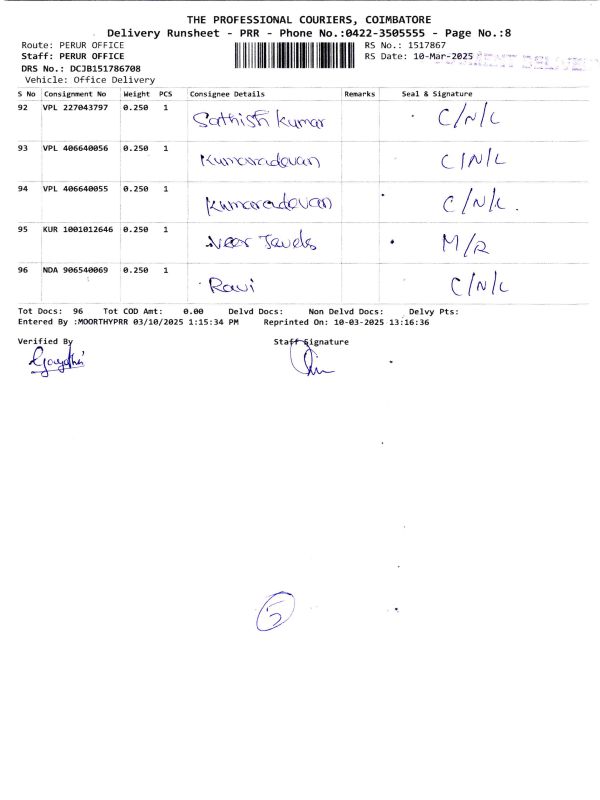 THE PROFESSIONAL COURIERS, COIMBATORE
Delivery Runsheet - PRR - Phone No.:0422-3505555 - Page No.:8
Route: PERUR OFFICE RS No.: 1517867
Staff: PERUR OFFICE RS Date: 10-Mar-2025
DRS No.: DCJB151786708
Vehicle: Office Delivery
S No Consignment No Weight PCS Consignee Details Remarks Seal & Signature
92 VPL 227043797 0.250 1 Sathish Kumar C/N/L
93 VPL 406640056 0.250 1 Kumaradevan C/N/L
94 VPL 406640055 0.250 1 Kumaradevan C/N/L.
95 KUR 1001012646 0.250 1 M/R
96 NDA 906540069 0.250 1 Ravi C/N/L
Tot Docs: 96 Tot COD Amt: 0.00 Delvd Docs: Non Delvd Docs: Delvy Pts:
Entered By :MOORTHYPRR 03/10/2025 1:15:34 PM Reprinted On: 10-03-2025 13:16:36
Verified By Staff Signature
5